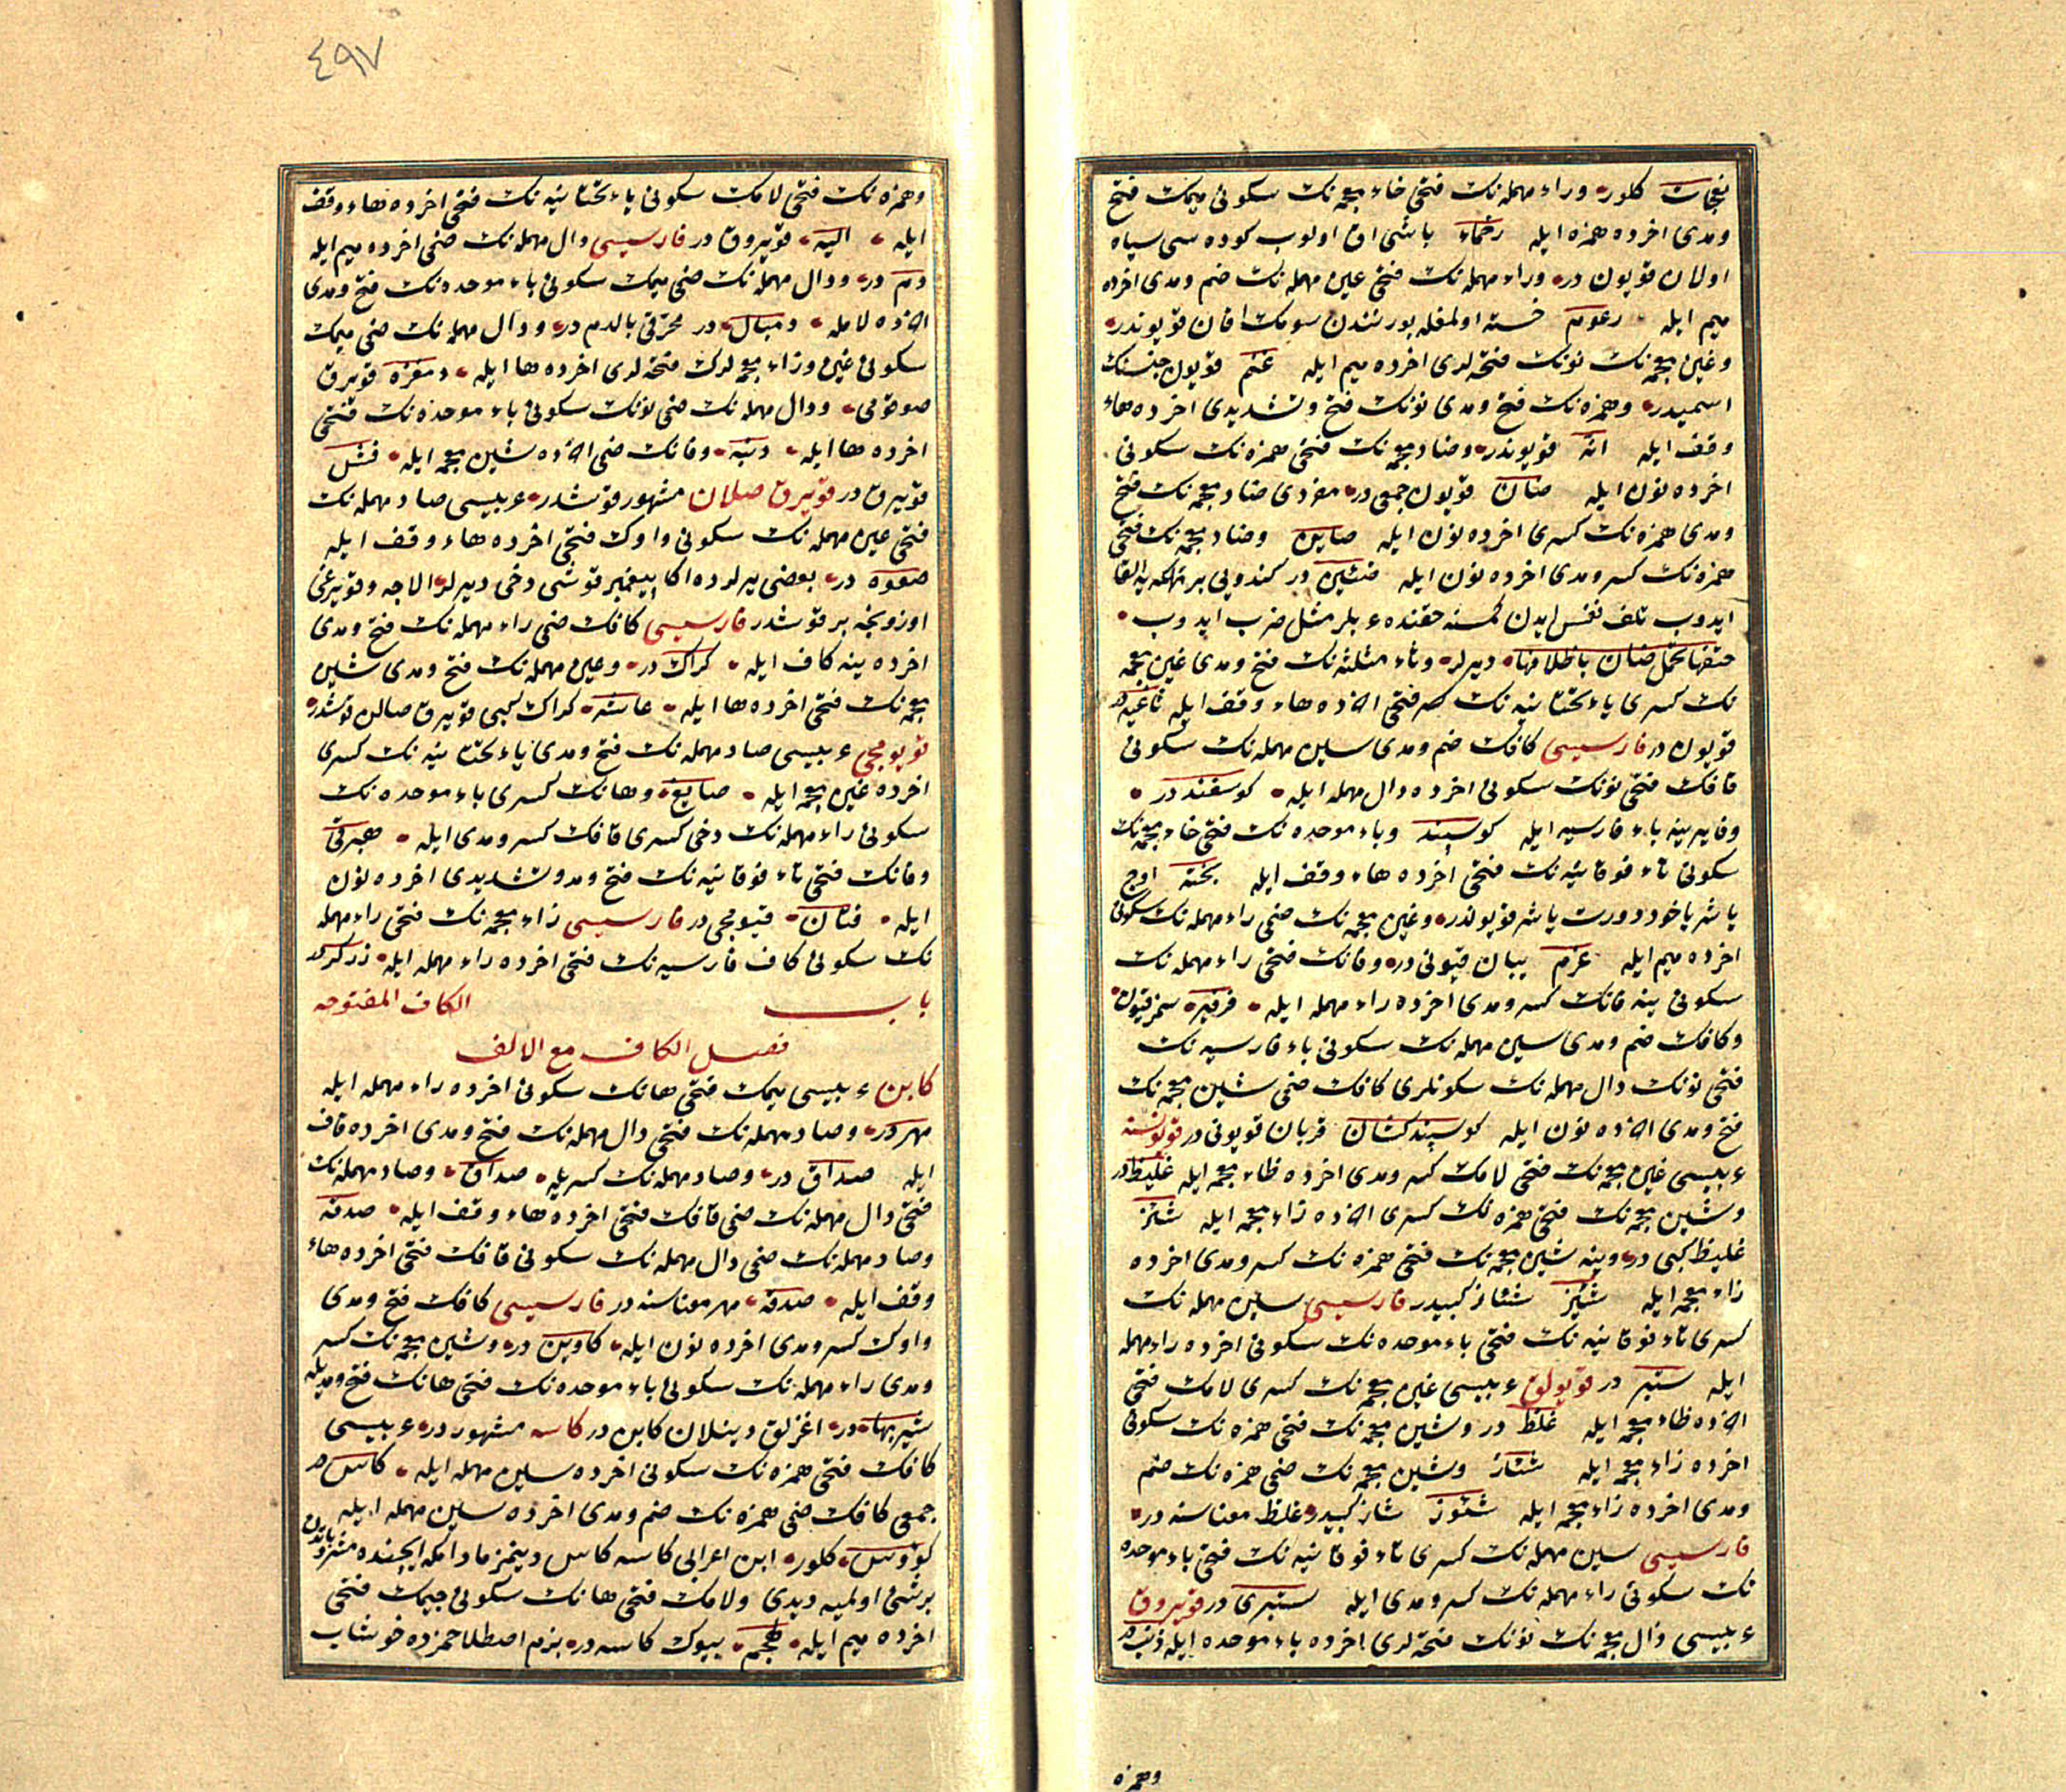 نعجات كلور وراء مهمله‌نك فتحى خاء معجمه‌نك سكونى ميمك فتح
ومدى اخرده همزه ايله رخماء باشى اق اولوب كوده‌سى سياه
اولان قويون در وراء مهمله‌نك فتحى عين مهمله‌نك ضم ومدى اخرده
ميم ايله رعوم خسته اولمغله بورنندن سومك اقان قويوندر
وغين معجمه‌نك نونك فتحه‌لرى اخرده ميم ايله غنم قويون جنسنك
اسميدر وهمزه‌نك فتح ومدى نونك فتح وتشديدى اخرده هاء
وقف ايله انه قويوندر وضاد معجمه‌نك فتحى همزه‌نك سكونى
اخرده نون ايله ضان قويون جمعى در مفردى ضاد معجمه‌نك فتح
ومدى همزه‌نك كسرى اخرده نون ايله ضاين وضاد معجمه‌نك فتحى
همزه‌نك كسر ومدى اخرده نون ايله ضئين در كندويى بر تهلكه‌يه القا
ايدوب تلف نفس ايدن كمسنه حقنده ع بلر مثل ضرب ايدوب
حتفها تحمل ضان باظلافها ديرلر وثاء مثلثه‌نك فتح ومدى غين معجمه
نك كسرى ياء تحتانيه‌نك فتحى اخرده هاء وقف ايله ثاغيه در
قويون در فارسيسى كافك ضم ومدى سين مهمله‌نك سكونى
فافك فتحى نونك سكونى اخرده دال مهمله ايله كوسفند در
وفا يرينه باء فارسيه ايله كوسپند وباء موحده‌نك فتحى خاء معجمه‌نك
سكونى تاء فوقانيه‌نك فتحى اخرده هاء وقف ايله بخته اوچ
ياشر ياخود دورت ياشر قويوندر وغين معجمه‌نك ضمى راء مهمله‌نك سكونى
اخرده ميم ايله غرم يبان قيونى در وفانك فتحى راء مهمله‌نك
سكونى ينه فانك كسر ومدى اخرده راء مهمله ايله فرفير سمز قيون
وكافك ضم ومدى سين مهمله‌نك سكونى باء فارسيه‌نك
فتحى نونك دال مهمله‌نك سكونلرى كافك ضمى شين معجمه‌نك
فتح ومدى اخرده نون ايله كوسپندكشان قربان قويونى در قويونسه
ع بيسى غين معجمه‌نك فتحى لامك كسر ومدى اخرده ظاء معجمه ايله غليظ در
وشين معجمه‌نك فتحى همزه‌نك كسرى اخرده زاء معجمه ايله شئز
غليظ كبى در وينه شين معجمه‌نك فتحى همزه‌نك كسر ومدى اخرده
زاء معجمه ايله شئيز شئاز كبيدر فارسيسى سين مهمله‌نك
كسرى تاء فوقانيه‌نك فتحى باء موحده‌نك سكونى اخرده راء مهمله
ايله ستبر در قويولق ع بيسى غين معجمه‌نك كسرى لامك فتحى
اخرده ظاء معجمه ايله غلظ در وشين معجمه‌نك فتحى همزه‌نك سكونى
اخرده زاء معجمه ايله شئاز وشين معجمه‌نك ضمى همزه‌نك ضم
ومدى اخرده زاء معجمه ايله شئوز شاز كبيدر غلظ معناسنه در
فارسيسى سين مهمله‌نك كسرى تاء فوقانيه‌نك فتحى باء موحده
نك سكونى راء مهمله‌نك كسر ومدى ايله ستبرى در قويروق
ع بيسى ذال معجمه‌نك نونك فتحه‌لرى اخرده باء موحده ايله ذنب در
وهمزه
٤٩٧
وهمزه‌نك فتحى لامك سكونى ياء تحتانيه‌نك فتحى اخرده هاء وقف
ايله اليه قويروق در فارسيسى دال مهمله‌نك ضمى اخرده ميم ايله
دم در ودال مهمله‌نك ضمى ميمك سكونى باء موحده‌نك فتح ومدى
اخرده لامله دمبال در محرفى بالدم در ودال مهمله‌نك ضمى ميمك
سكونى غين وزاء معجمه‌لرك فتحه‌لرى اخرده ها ايله دمغزه قويرق
صوقومى ودال مهمله‌نك ضمى نونك سكونى باء موحده‌نك فتحى
اخرده ها ايله دنبه وفانك ضمى اخرده شين معجمه ايله فش
قويرق در قويرق صلان مشهور قوشدر ع بيسى صاد مهمله‌نك
فتحى عين مهمله‌نك سكونى واوك فتحى اخرده هاء وقف ايله
صعوه در بعضى يرلرده اكا پيغمبر قوشى دخى ديرلر الاجه وقويرغى
اوزونجه بر قوشدر فارسيسى كافك ضمى راء مهمله‌نك فتح ومدى
اخرده ينه كاف ايله كراك در وعين مهمله‌نك فتح ومدى شين
معجمه‌نك فتحى اخرده ها ايله عاشه كراك كبى قويرق صالان قوشدر
قويومجى ع بيسى صاد مهمله‌نك فتح ومدى ياء تحتانيه‌نك كسرى
اخرده غين معجمه ايله صايغ وهانك كسرى باء موحده‌نك
سكونى راء مهمله‌نك دخى كسرى قافك كسر ومدى ايله هبرقى
وفانك فتحى تاء فوقانيه‌نك فتح ومد وتشديدى اخرده نون
ايله فتان قيومجى در فارسيسى زاء معجمه‌نك فتحى راء مهمله
نك سكونى كاف فارسيه‌نك فتحى اخرده راء مهمله ايله زركر در
باب الكاف المفتوحه
فصل الكاف مع الالف
كابن ع بيسى ميمك فتحى هانك سكونى اخرده راء مهمله ايله
مهر در وصاد مهمله‌نك فتحى دال مهمله‌نك فتح ومدى اخرده قاف
ايله صداق در وصاد مهمله‌نك كسريله صداق وصاد مهمله‌نك
فتحى دال مهمله‌نك ضمى قافك فتحى اخرده هاء وقف ايله صدقه
وصاد مهمله‌نك ضمى دال مهمله‌نك سكونى قافك فتحى اخرده هاء
وقف ايله صدقه مهر معناسنه در فارسيسى كافك فتح ومدى
واوك كسر ومدى اخرده نون ايله كاوين در وشين معجمه‌نك كسر
ومدى راء مهمله‌نك سكونى باء موحده‌نك فتحى هانك فتح ومديله
شيربها در اغزلق دينلان كابن در كاسه مشهور در ع بيسى
كافك فتحى همزه‌نك سكونى اخرده سين مهمله ايله كاس در
جمعى كافك ضمى همزه‌نك ضم ومدى اخرده سين مهمله ايله
كؤوس كلور ابن اعرابى كاسه كاس دينمز مادامكه ايچنده مشروباتدن
برشئ اولميه ديدى ولامك فتحى هانك سكونى جيمك فتحى
اخرده ميم ايله لهجم بيوك كاسه در بزم اصطلاحمزده خوشاب